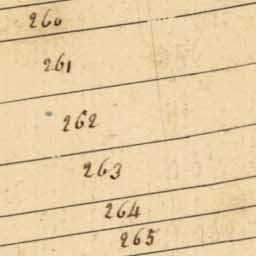 260
261
262
263
264
265